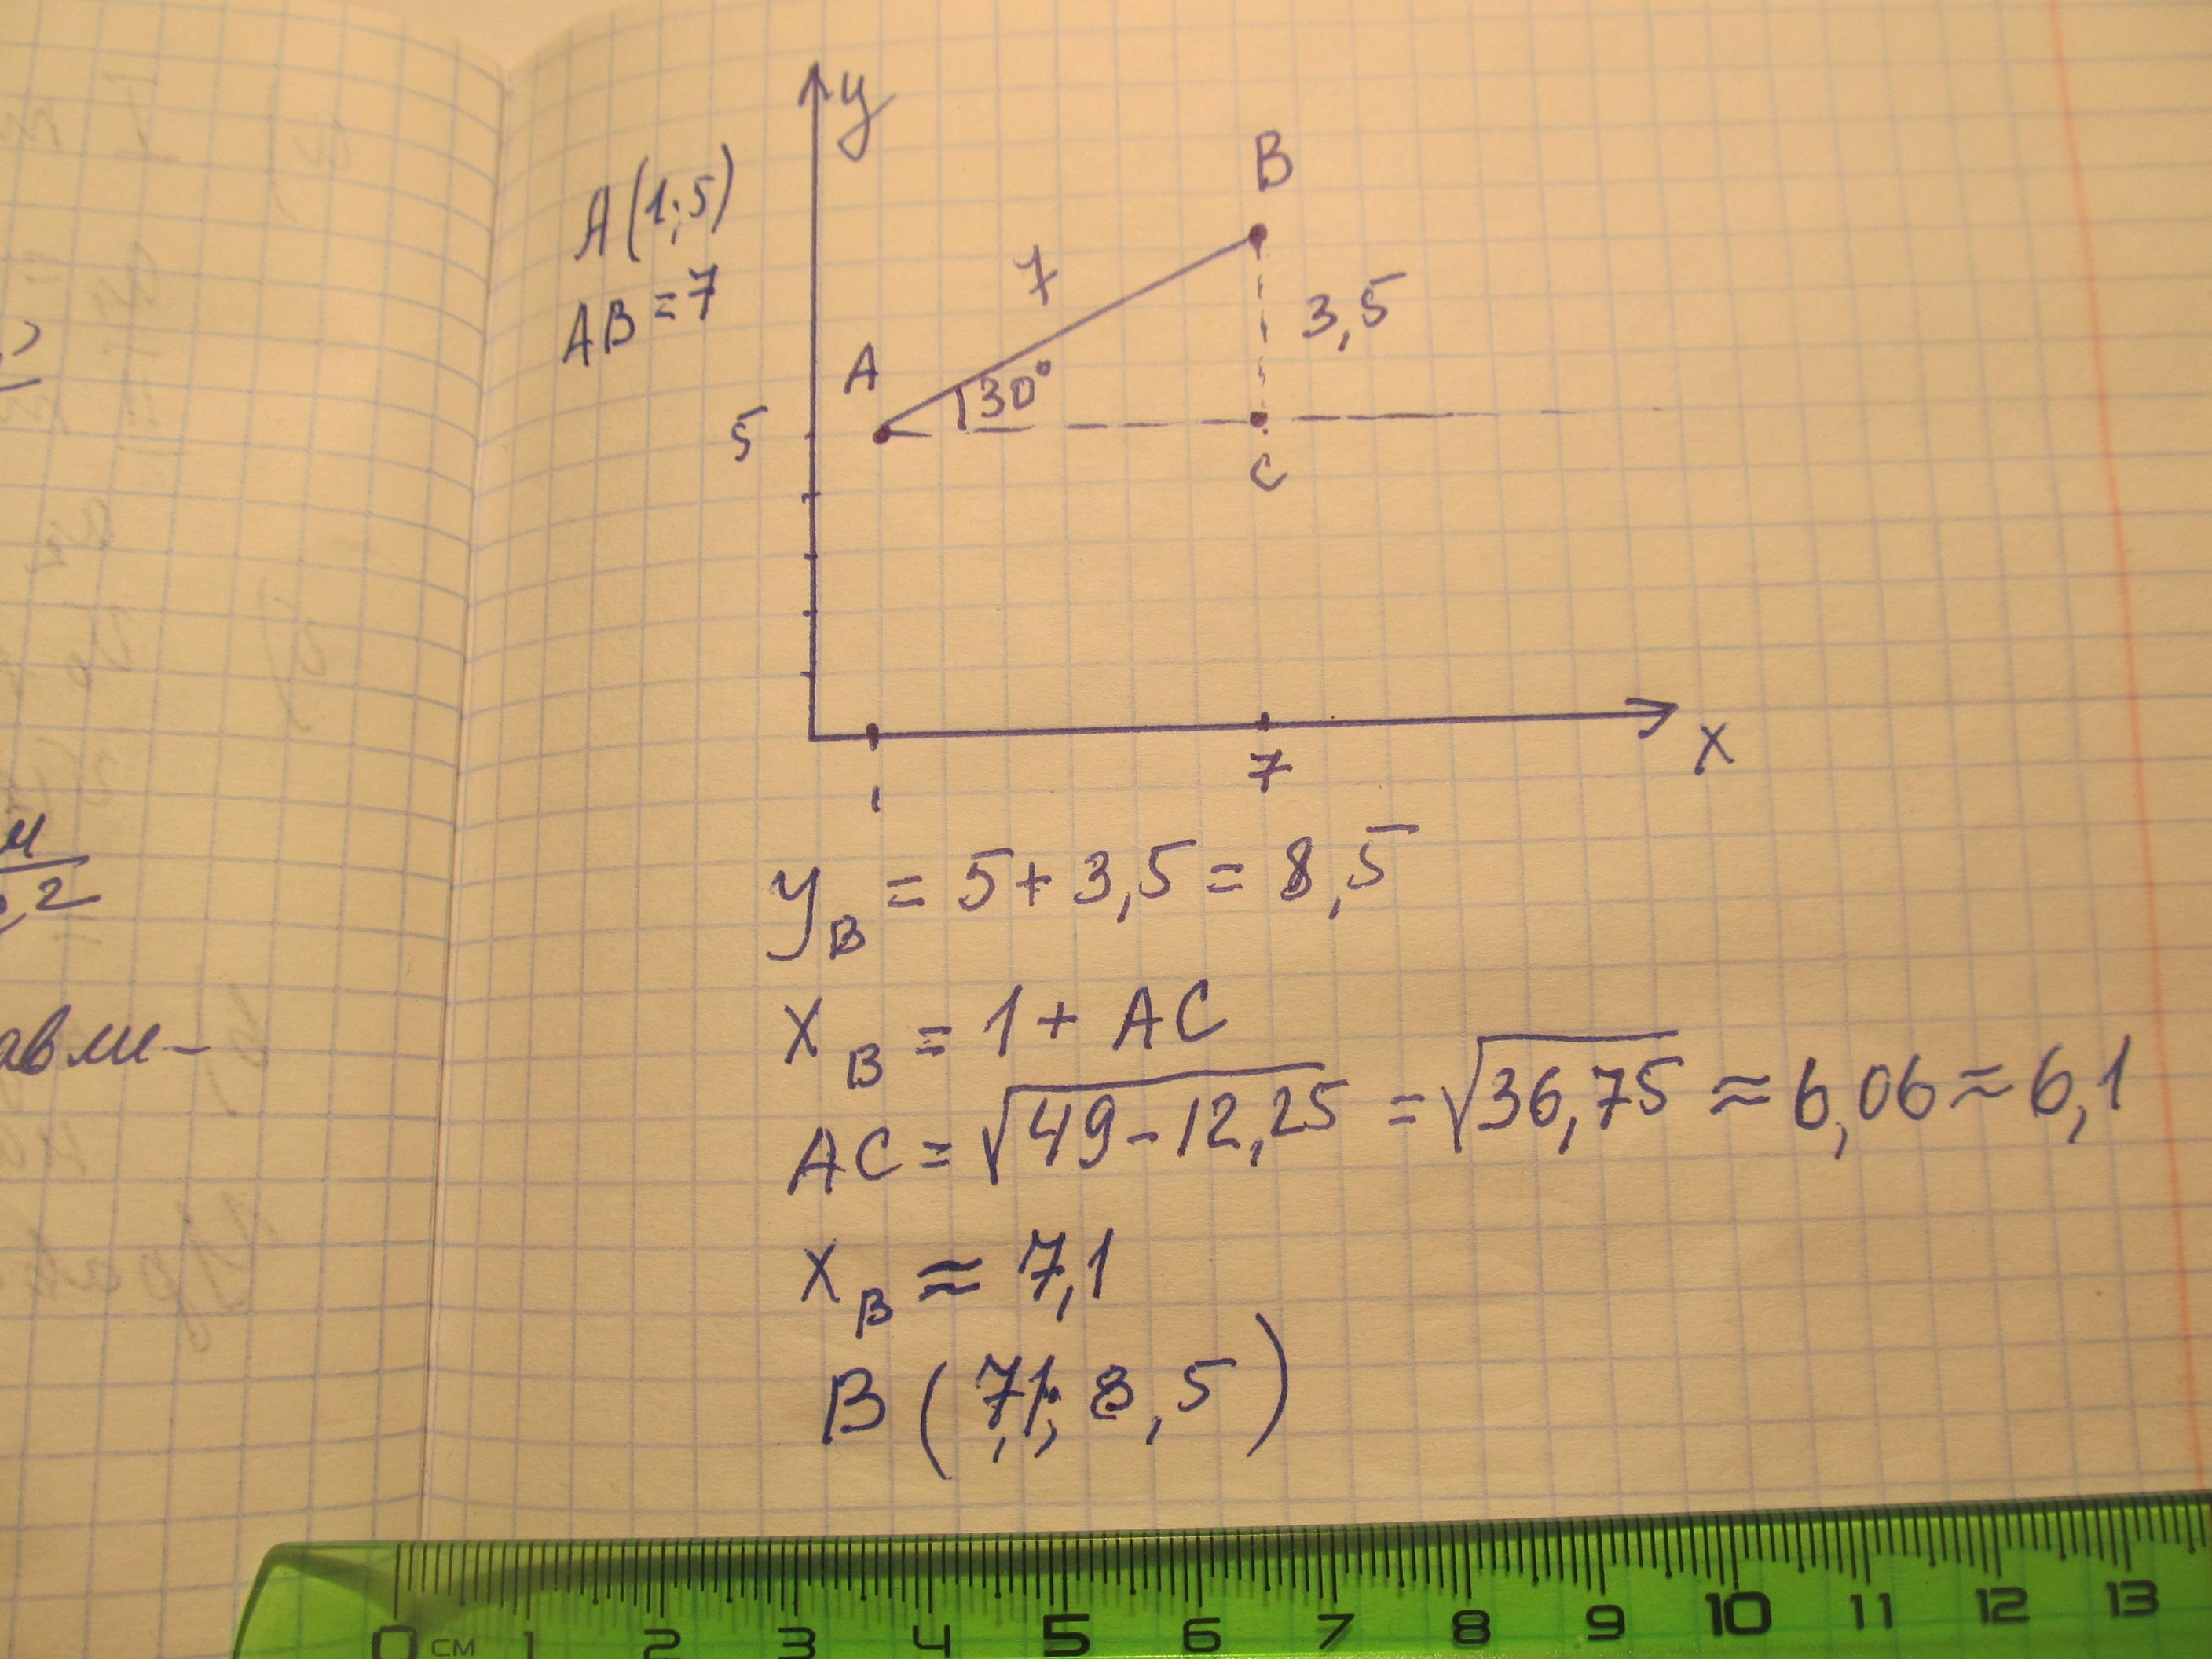 y
B
A(1;5)
7
AB=7
3,5
A
30°
5
C
1
7
X
y_B = 5+3,5 = 8,5
X_B = 1+ AC
AC = √49-12,25 = √36,75 ≈ 6,06 ≈ 6,1
X_B ≈ 7,1
B (7,1; 8,5)
м
,2
авли-
0 см 1 2 3 4 5 6 7 8 9 10 11 12 13